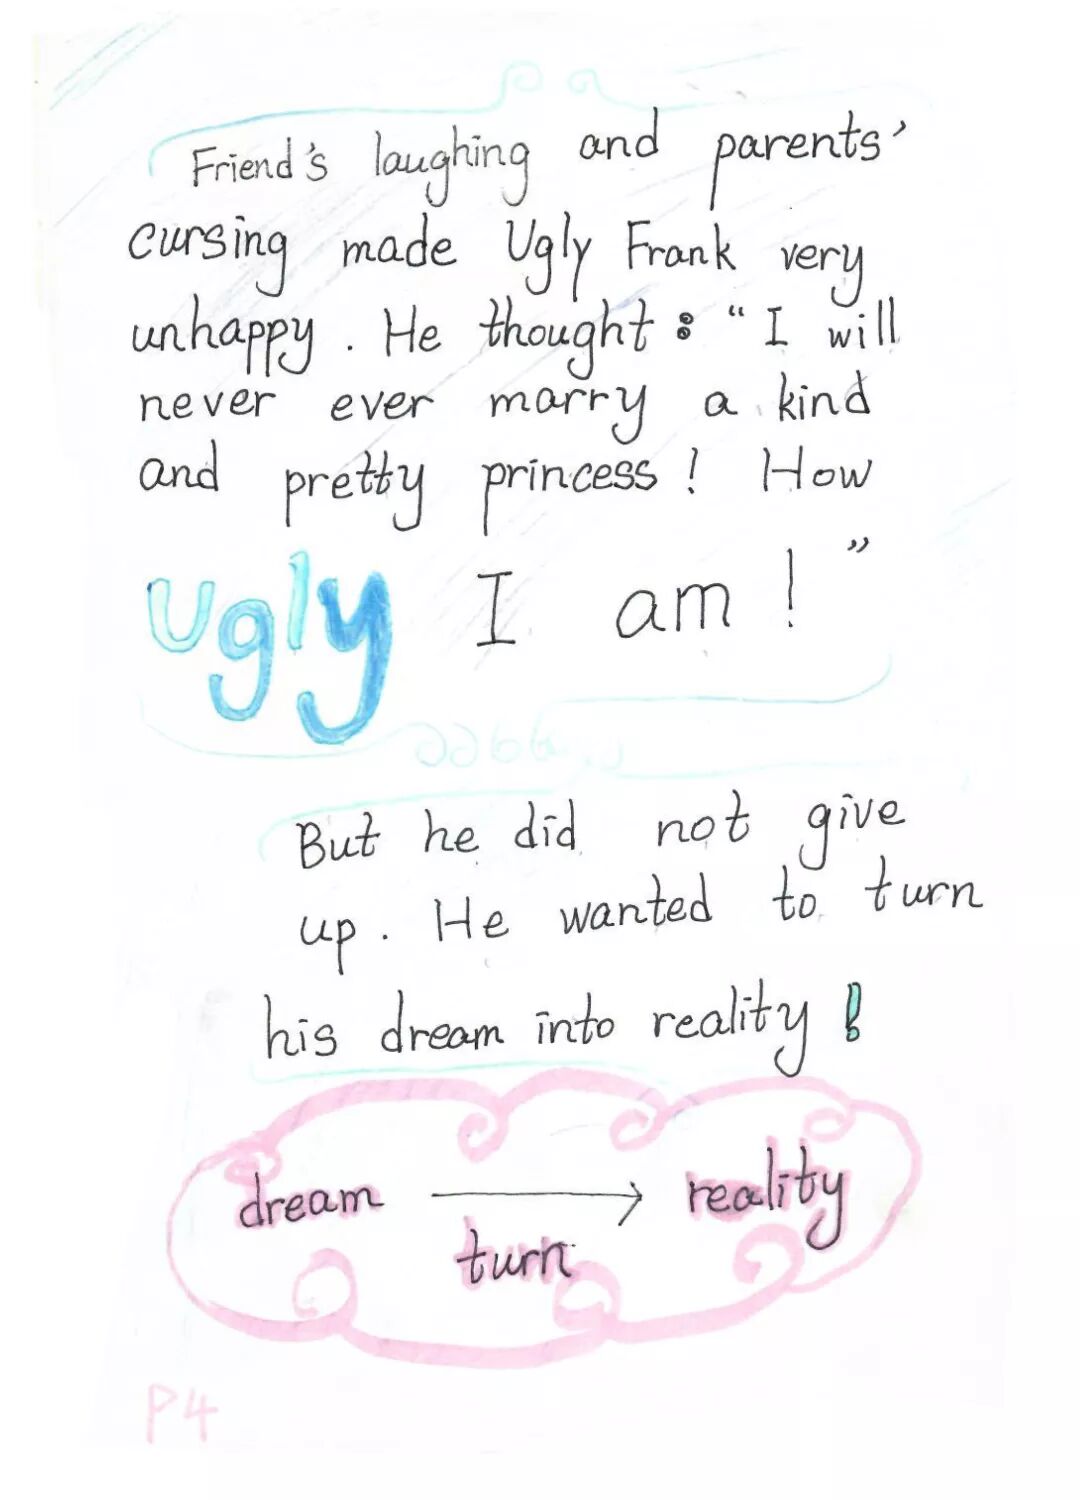 Friend's laughing and parents'
cursing made Ugly Frank very
unhappy. He thought: “I will
never ever marry a kind
and pretty princess! How
Ugly I am!”
But he did not give
up. He wanted to turn
his dream into reality!
dream → reality
turn
P4